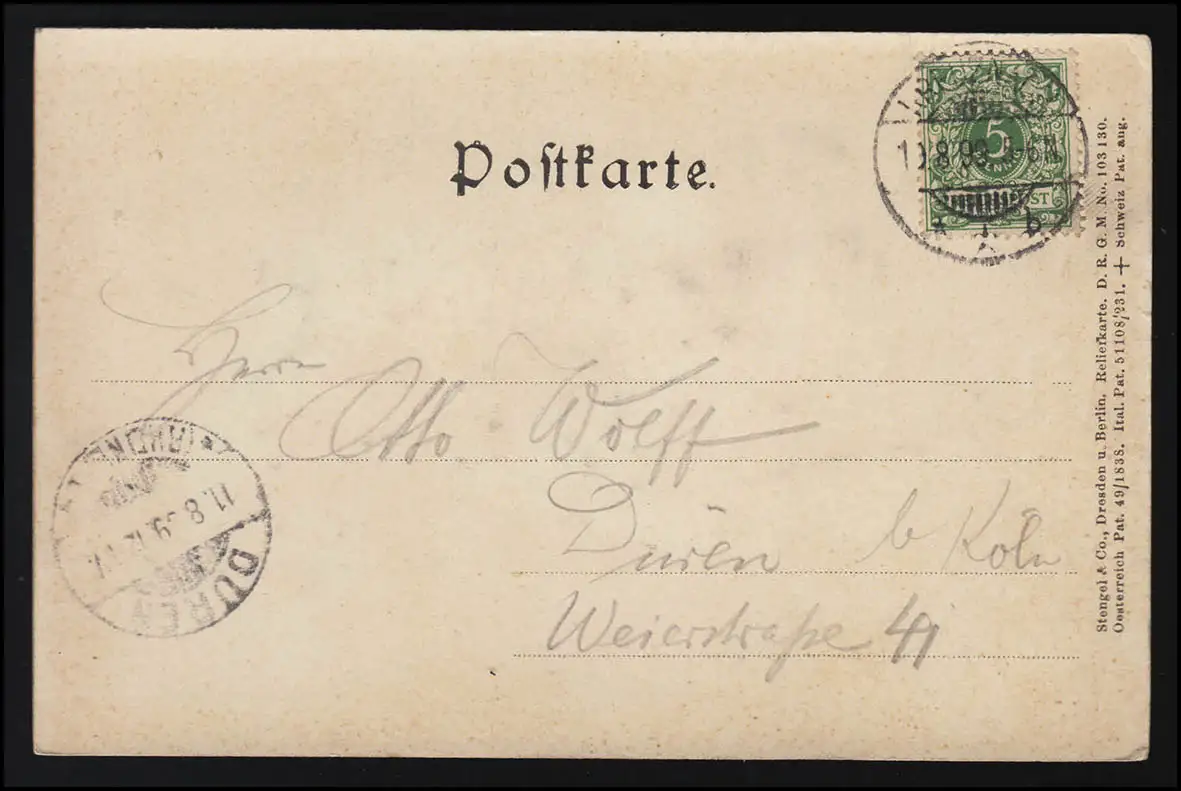 Postkarte.
10.8.99. 5-6N.
5
PFENNIG
a b
Herrn
Otto Wolff
Düren b Köln
Weierstraße 41
DÜREN
(RHEINL.)
11.8.99.
Stengel & Co., Dresden u. Berlin. Reliefkarte. D. R. G. M. No. 103 130.
Oesterreich Pat. 49/1838. Ital. Pat. 51108/231. + Schweiz Pat. ang.